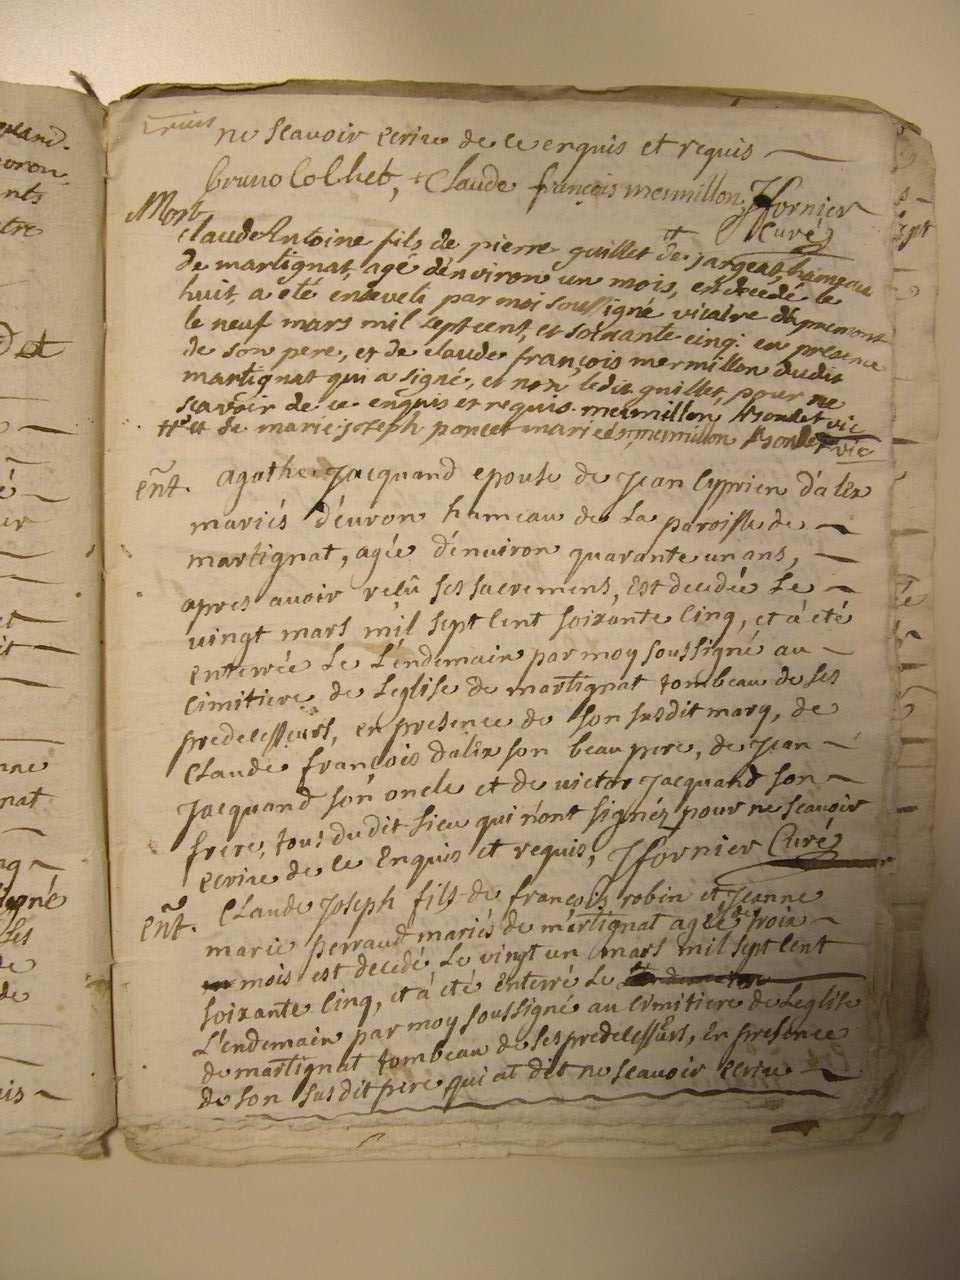 ne scavoir ecrire de ce enquis et requis
bruno Collet, + Claude françois mermillon, J fornier
Curé
Mort
claude Antoine fils de pierre guillet de jargeat, hameau
de martignat, agé d'environ un mois, en decedé le
huit, a été enseveli par moi soussigné vicaire d'apremont
le neuf mars mil sept cent, et soixante cinq: en presence
de son pere, et de claude françois mermillon dudit
martignat qui a signé, et non ledit guillet, pour ne
scavoir de ce enquis et requis. mermillon vic
tt et de marie joseph poncet mariés, mermillon vic
Ent. agathe Jacquand epouse de Jean Cyprien d'alex
mariés d'euron hameau de La paroisse de
martignat, agée d'environ quarante un ans,
apres avoir reçû ses sacremens, est decedée Le
vingt mars mil sept Cent soixante Cinq, et à été
enterrée Le Lendemain par moy soussigné au
Cimitiere de Leglise de martignat tombeau de ses
predecesseurs, en presence de son susdit mary, de
Claude françois dalex son beau pere, de Jean
Jacquand son oncle et de victor Jacquand son
frere, tous dudit Lieu qui n'ont signéz pour ne scavoir
ecrire de ce Enquis et requis, J fornier Curé
Ent. Claude Joseph fils de françois robin et Jeanne
marie perraud mariés de martignat agée de troix
mois est decedé Le vingt un mars mil sept Cent
soixante Cinq, et à été enterré Le
L'endemain par moy soussigné au Cimitiere de Leglise
de martignat tombeau de ses predecesseurs, En presence
de son susdit pere qui at dit ne scavoir ecrire